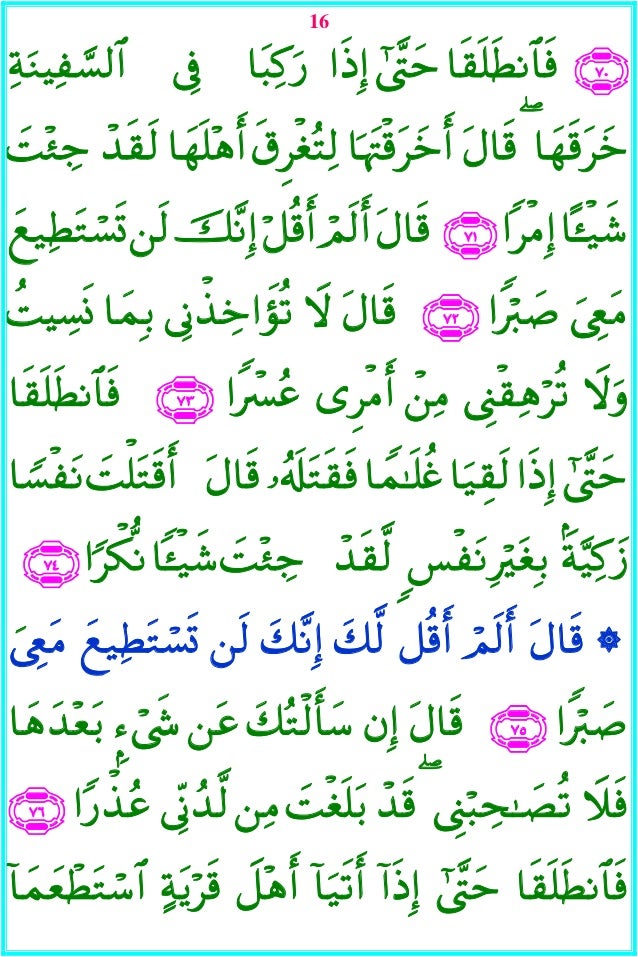 16
٧٠ فَٱنطَلَقَا حَتَّىٰٓ إِذَا رَكِبَا فِى ٱلسَّفِينَةِ
خَرَقَهَا ۖ قَالَ أَخَرَقْتَهَا لِتُغْرِقَ أَهْلَهَا لَقَدْ جِئْتَ
شَيْـًٔا إِمْرًا ٧١ قَالَ أَلَمْ أَقُلْ إِنَّكَ لَن تَسْتَطِيعَ
مَعِىَ صَبْرًا ٧٢ قَالَ لَا تُؤَاخِذْنِى بِمَا نَسِيتُ
وَلَا تُرْهِقْنِى مِنْ أَمْرِى عُسْرًا ٧٣ فَٱنطَلَقَا
حَتَّىٰٓ إِذَا لَقِيَا غُلَـٰمًا فَقَتَلَهُۥ قَالَ أَقَتَلْتَ نَفْسًا
زَكِيَّةًۢ بِغَيْرِ نَفْسٍ لَّقَدْ جِئْتَ شَيْـًٔا نُّكْرًا ٧٤
۞ قَالَ أَلَمْ أَقُل لَّكَ إِنَّكَ لَن تَسْتَطِيعَ مَعِىَ
صَبْرًا ٧٥ قَالَ إِن سَأَلْتُكَ عَن شَىْءٍۭ بَعْدَهَا
فَلَا تُصَـٰحِبْنِى ۖ قَدْ بَلَغْتَ مِن لَّدُنِّى عُذْرًا ٧٦
فَٱنطَلَقَا حَتَّىٰٓ إِذَآ أَتَيَآ أَهْلَ قَرْيَةٍ ٱسْتَطْعَمَآ